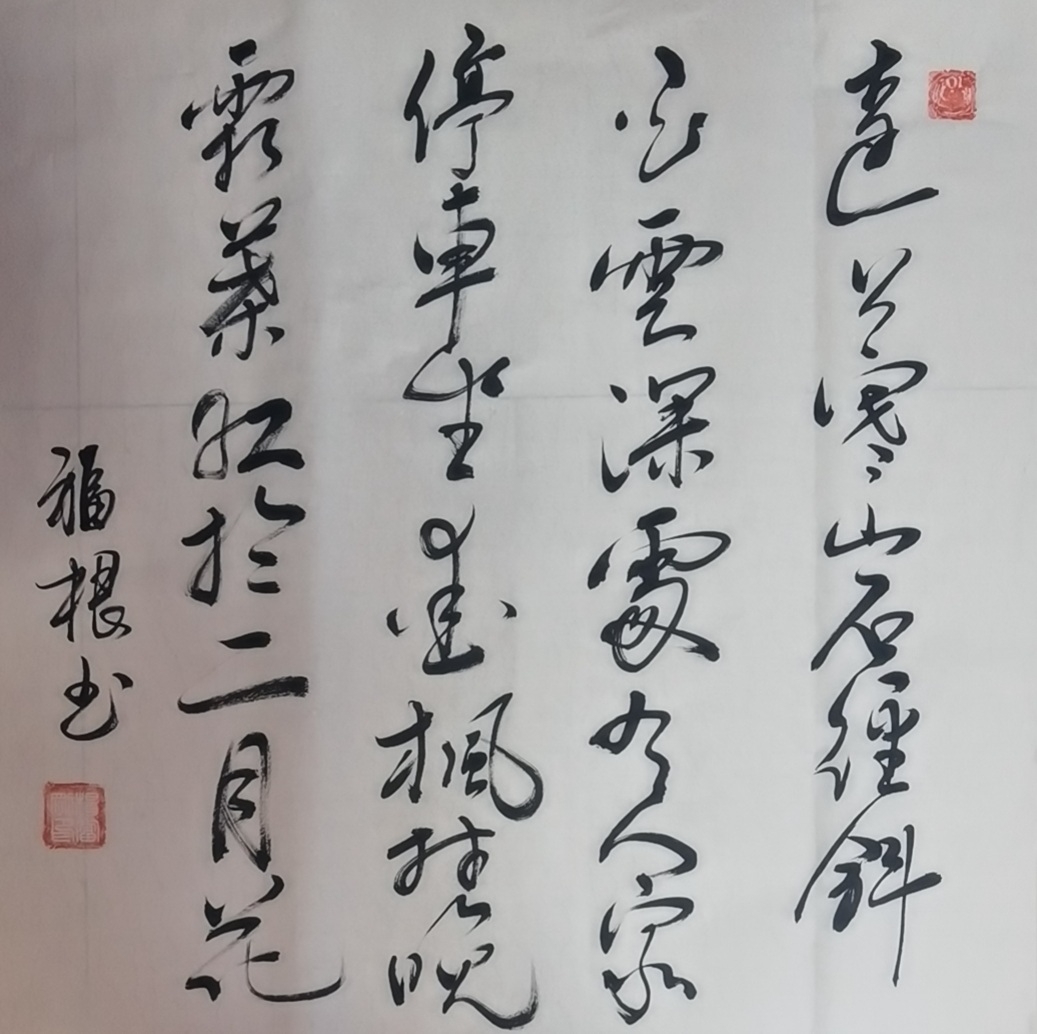 遠上寒山石徑斜
白雲深處有人家
停車坐愛楓林晚
霜葉紅於二月花
福根书